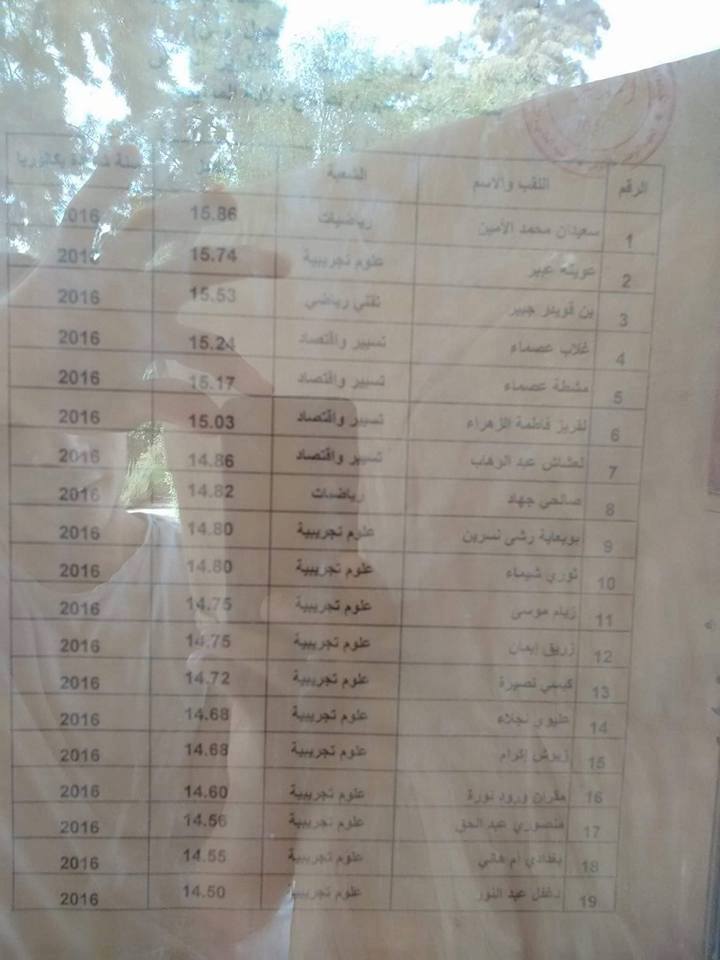 الرقم اللقب والاسم الشعبة سنة شهادة بكالوريا
1 سعيدان محمد الأمين رياضيات 15.86 2016
2 عبير علوم تجريبية 15.74 2016
3 بن قويدر جبير تقني رياضي 15.53 2016
4 غلاب عصماء تسيير واقتصاد 15.24 2016
5 مشطة عصماء تسيير واقتصاد 15.17 2016
6 لغريز فاطمة الزهراء تسيير واقتصاد 15.03 2016
7 لعشاش عبد الوهاب تسيير واقتصاد 14.86 2016
8 صالحي جهاد رياضيات 14.82 2016
9 بوبعاية رشى نسرين علوم تجريبية 14.80 2016
10 نوري شيماء علوم تجريبية 14.80 2016
11 زيام موسى علوم تجريبية 14.75 2016
12 زريق إيمان علوم تجريبية 14.75 2016
13 نصيرة علوم تجريبية 14.72 2016
14 عليوي نجلاء علوم تجريبية 14.68 2016
15 زبرش إكرام علوم تجريبية 14.68 2016
16 مقران ورود نورة علوم تجريبية 14.60 2016
17 منصوري عبد الحق علوم تجريبية 14.56 2016
18 بغدادي أم هاني علوم تجريبية 14.55 2016
19 دغفل عبد النور علوم تجريبية 14.50 2016